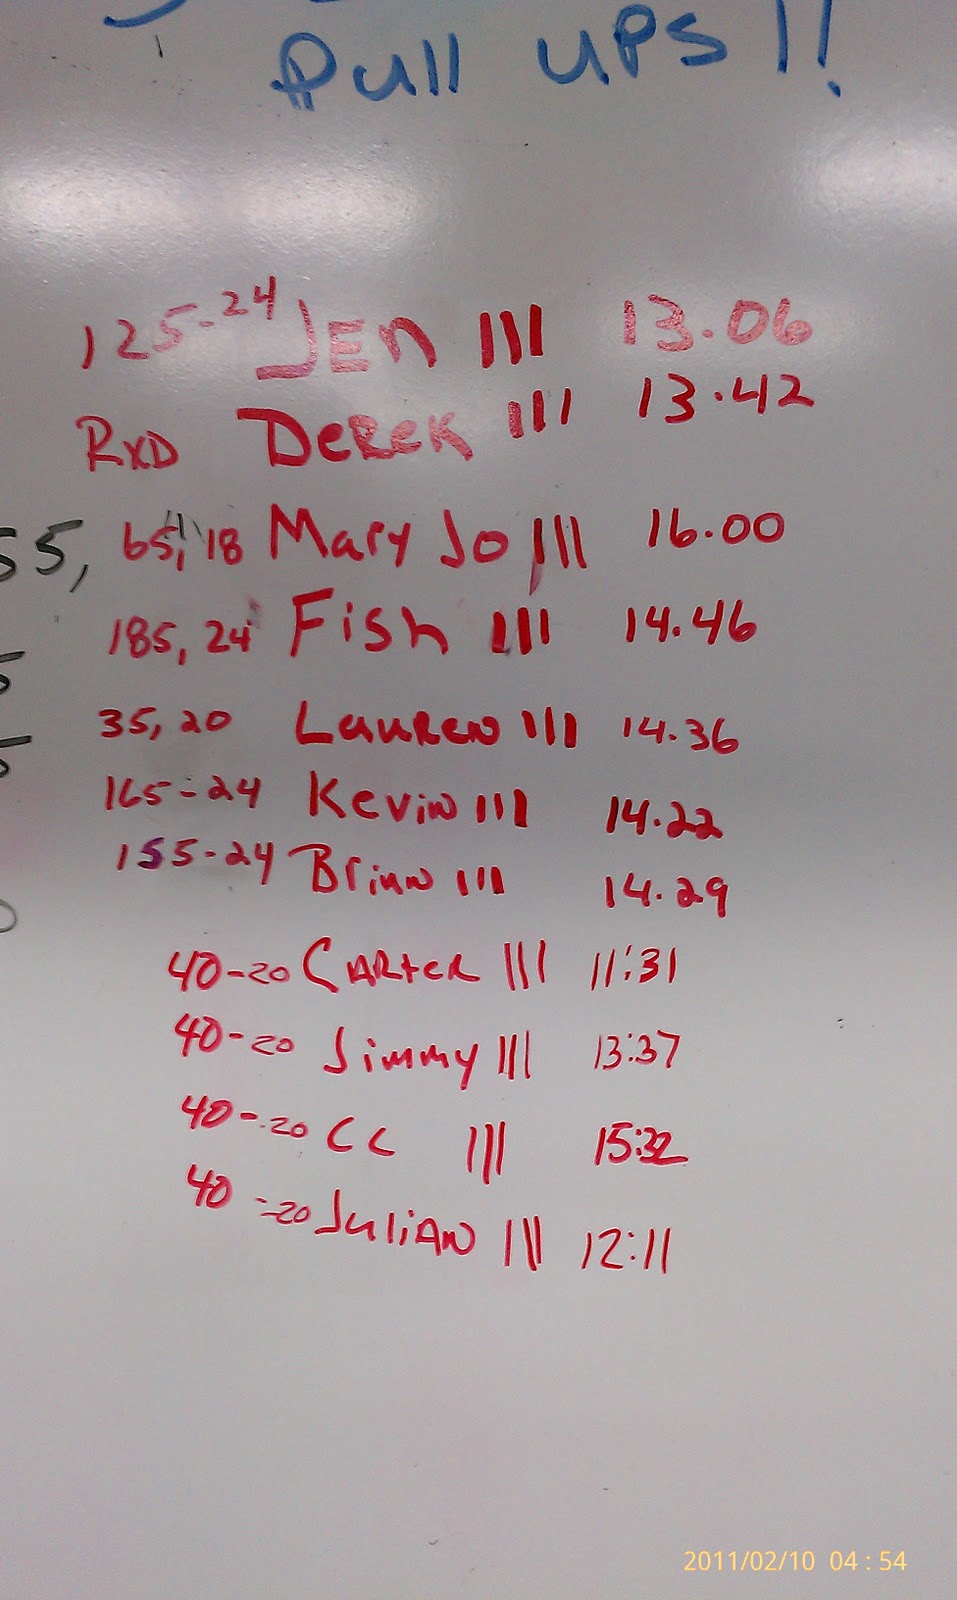 Pull UPS!!
125-24 JEN III 13.06
RXD DEREK III 13.42
55, 65, 18 Mary Jo III 16.00
185, 24 Fish III 14.46
35, 20 Lauren III 14.36
165-24 Kevin III 14.22
155-24 Brian III 14.29
40-20 CARTER III 11:31
40-20 Jimmy III 13:37
40-20 CC III 15:32
40-20 JuliAN III 12:11
2011/02/10 04:54